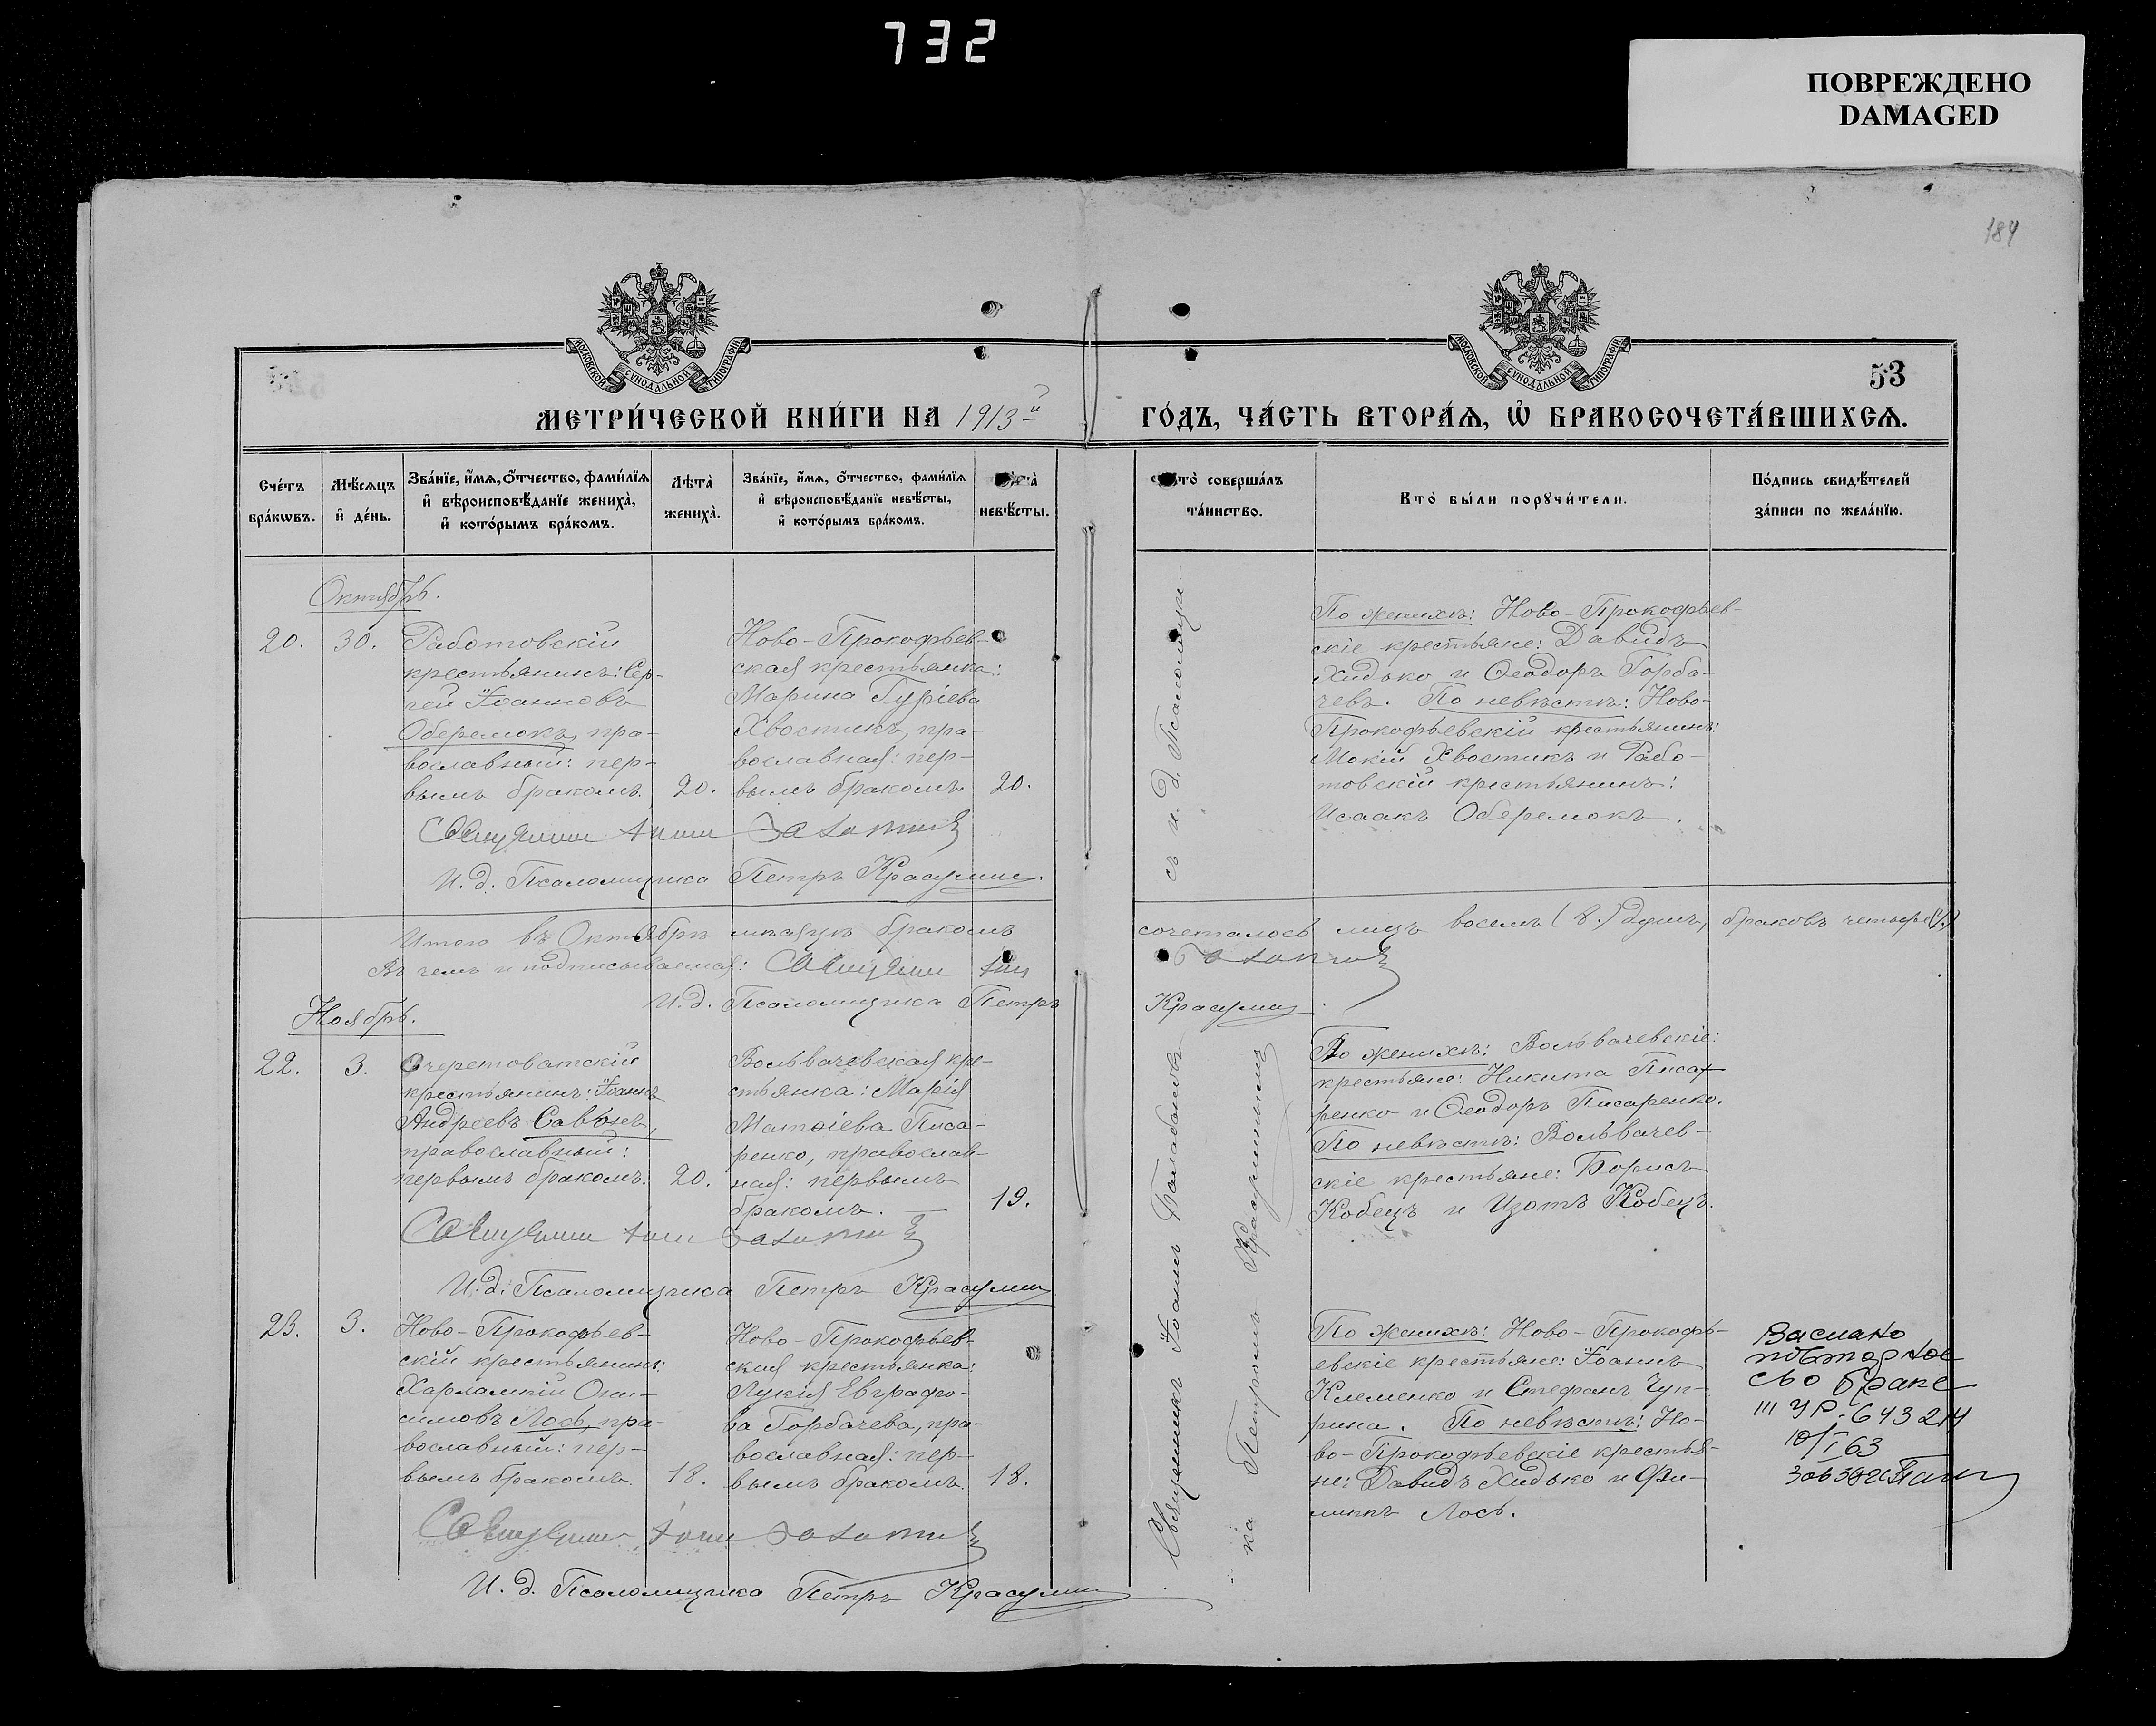 732
ПОВРЕЖДЕНО
DAMAGED
184
МОСКОВСКОЙ СѴНОДАЛЬНОЙ ТИПОГРАФІИ
МОСКОВСКОЙ СѴНОДАЛЬНОЙ ТИПОГРАФІИ
53
МЕТРИ́ЧЕСКОЙ КНИ́ГИ НА 1913й
ГО́ДЪ, ЧА́СТЬ ВТОРА́Ѧ, Ѡ҆ БРАКОСОЧЕТА́ВШИХСѦ.
Сче́тъ бра́кѡвъ.
Мѣ́сѧцъ и҆ де́нь.
Зва́нїе, и҆́мѧ, ѻ҆́тчество, фами́лїѧ и҆ вѣроисповѣ́данїе жениха̀, и҆ кото́рымъ бра́комъ.
Лѣта̀ жениха̀.
Зва́нїе, и҆́мѧ, ѻ҆́тчество, фами́лїѧ и҆ вѣроисповѣ́данїе невѣ́сты, и҆ кото́рымъ бра́комъ.
невѣ́сты.
соверша́лъ та́инство.
Кто̀ бы́ли порꙋчи́тели.
По́дпись свидѣ́телей за́писи по жела́нїю.
Октябрь.
20.
30.
Работовскій
крестьянинъ: Сер-
гей Іоанновъ
Оберемокъ, пра-
вославный: пер-
вымъ бракомъ.
20.
Ново-Прокофьев-
ская крестьянка:
Марина Гуріева
Хвостикъ, пра-
вославная: пер-
вымъ бракомъ
20.
По женихѣ: Ново-Прокофьев-
скіе крестьяне: Давидъ
Хидько и Ѳеодоръ Горба-
чевъ. По невѣстѣ: Ново-
Прокофьевскій крестьянинъ:
Мокій Хвостикъ и Рабо-
товскій крестьянинъ:
Исаакъ Оберемокъ.
И. д. Псаломщика Петръ Красулин
Итого въ Октябрѣ мѣсяцѣ бракомъ сочеталось лицъ восемь (8.) душъ, браковъ четыре (4.)
Въ чемъ и подписываемся:
И. д. Псаломщика Петръ
Ноябрь.
22.
3.
Очеретоватскій
крестьянинъ: Іоаннъ
Андреевъ Савонъ,
православный:
первымъ бракомъ.
20.
Вольвачевская кре-
стьянка: Марія
Матѳіева Писа-
ренко, православ-
ная: первымъ
бракомъ.
19.
По женихѣ: Вольвачевскіе:
крестьяне: Никита Писа-
ренко и Ѳеодоръ Писаренко.
По невѣстѣ: Вольвачев-
скіе крестьяне: Борисъ
Кобецъ и Изотъ Кобецъ.
И. д. Псаломщика Петръ
23.
3.
Ново-Прокофьев-
скій крестьянинъ:
Харлампій Они-
симовъ Лось, пра-
вославный: пер-
вымъ бракомъ.
18.
Ново-Прокофьев-
ская крестьянка:
Лукія Евграфо-
ва Горбачева, пра-
вославная: пер-
вымъ бракомъ.
18.
По женихѣ: Ново-Прокофь-
евскіе крестьяне: Іоаннъ
Клеменко и Стефанъ Чуп-
рина. По невѣстѣ: Но-
во-Прокофьевскіе крестья-
не: Давидъ Хидько и Фи-
липпъ Лось.
повторное
с-во браке
III УР. 643214
10/I 63
И. д. Псаломщика Петръ
Священникъ Іоаннъ
съ и. д. Псаломщи-
ка Петромъ